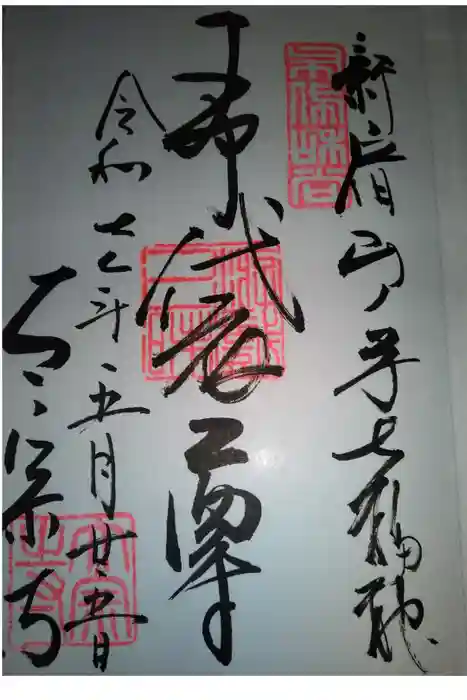 新宿山ノ手七福神
布袋尊
令和七年五月廿五日
太宗寺